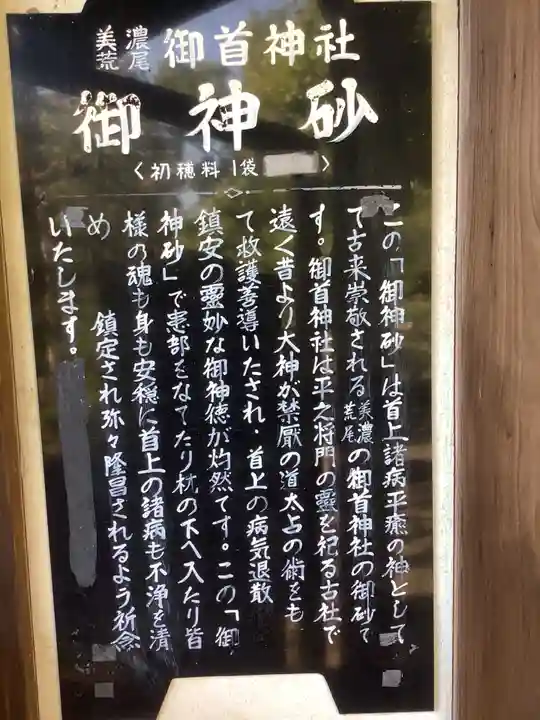 美濃
荒尾
御首神社
御神砂
〈初穂料1袋　　〉
この「御神砂」は首上諸病平癒の神として
て古来崇敬される美濃荒尾の御首神社の御砂で
す。御首神社は平之将門の靈を祀る古社で
遠く昔より大神が禁厭の道太占の術をも
て救護善導いたされ、首上の病気退散
鎮安の靈妙な御神徳が灼然です。この「御
神砂」で患部をなでたり枕の下へ入たり皆
様の魂も身も安穏に首上の諸病も不浄を清
め　鎮定され弥々隆昌されるよう祈念
いたします。